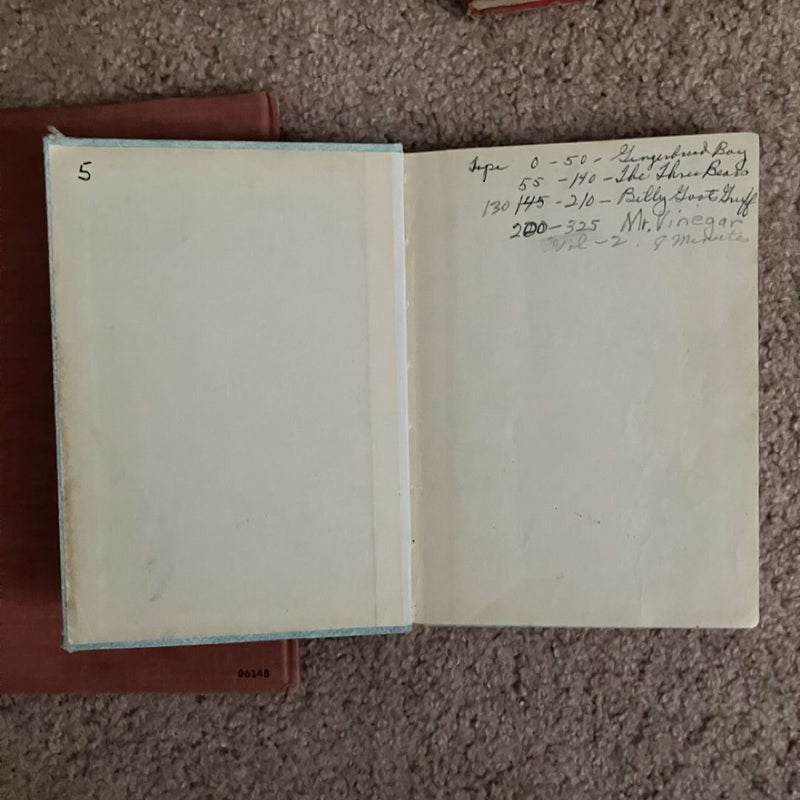 5
Tape 0 - 50 - Gingerbread Boy
55 - 140 - The Three Bears
130 145 - 210 - Billy Goat Gruff
200 - 325 Mr. Vinegar
Vol - 2. 8 Minutes
06148